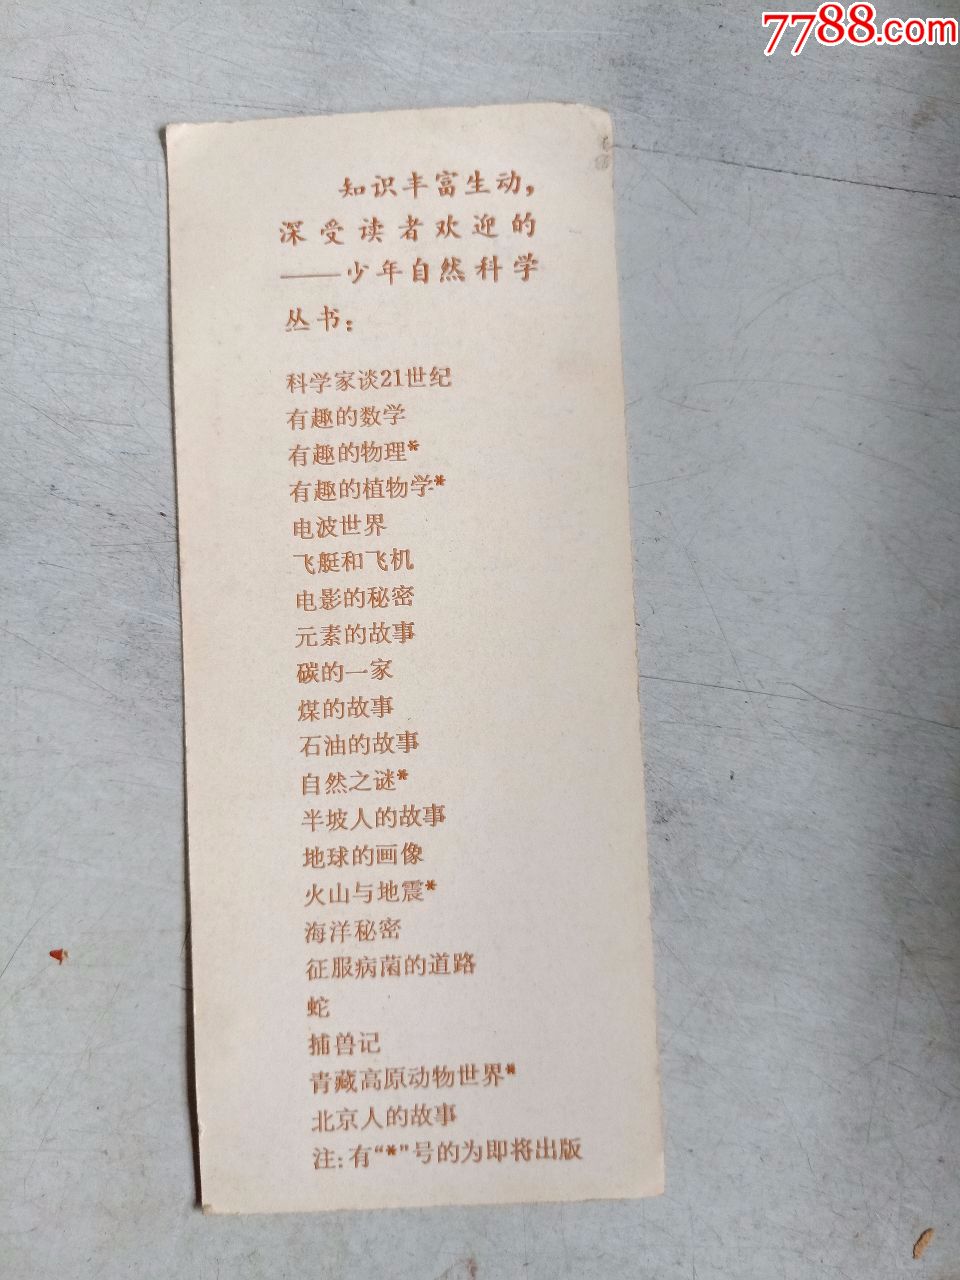 7788.com
知识丰富生动，
深受读者欢迎的
——少年自然科学
丛书：
科学家谈21世纪
有趣的数学
有趣的物理*
有趣的植物学*
电波世界
飞艇和飞机
电影的秘密
元素的故事
碳的一家
煤的故事
石油的故事
自然之谜*
半坡人的故事
地球的画像
火山与地震*
海洋秘密
征服病菌的道路
蛇
捕兽记
青藏高原动物世界*
北京人的故事
注：有“*”号的为即将出版